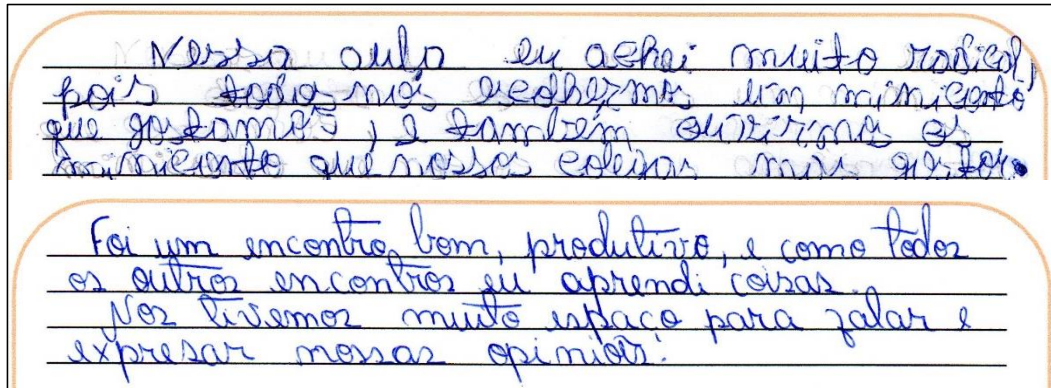 Nessa aula eu achei muito radical,
pois todos nós escolhermos um miniconto
que gostamos, e também ouvirimos os
miniconto que nossos colegas mais gostor.
Foi um encontro bom, produtivo, e como todos
os outros encontros eu aprendi coisas.
Nos tivemos muito espaço para falar e
expresar nossas opiniois.